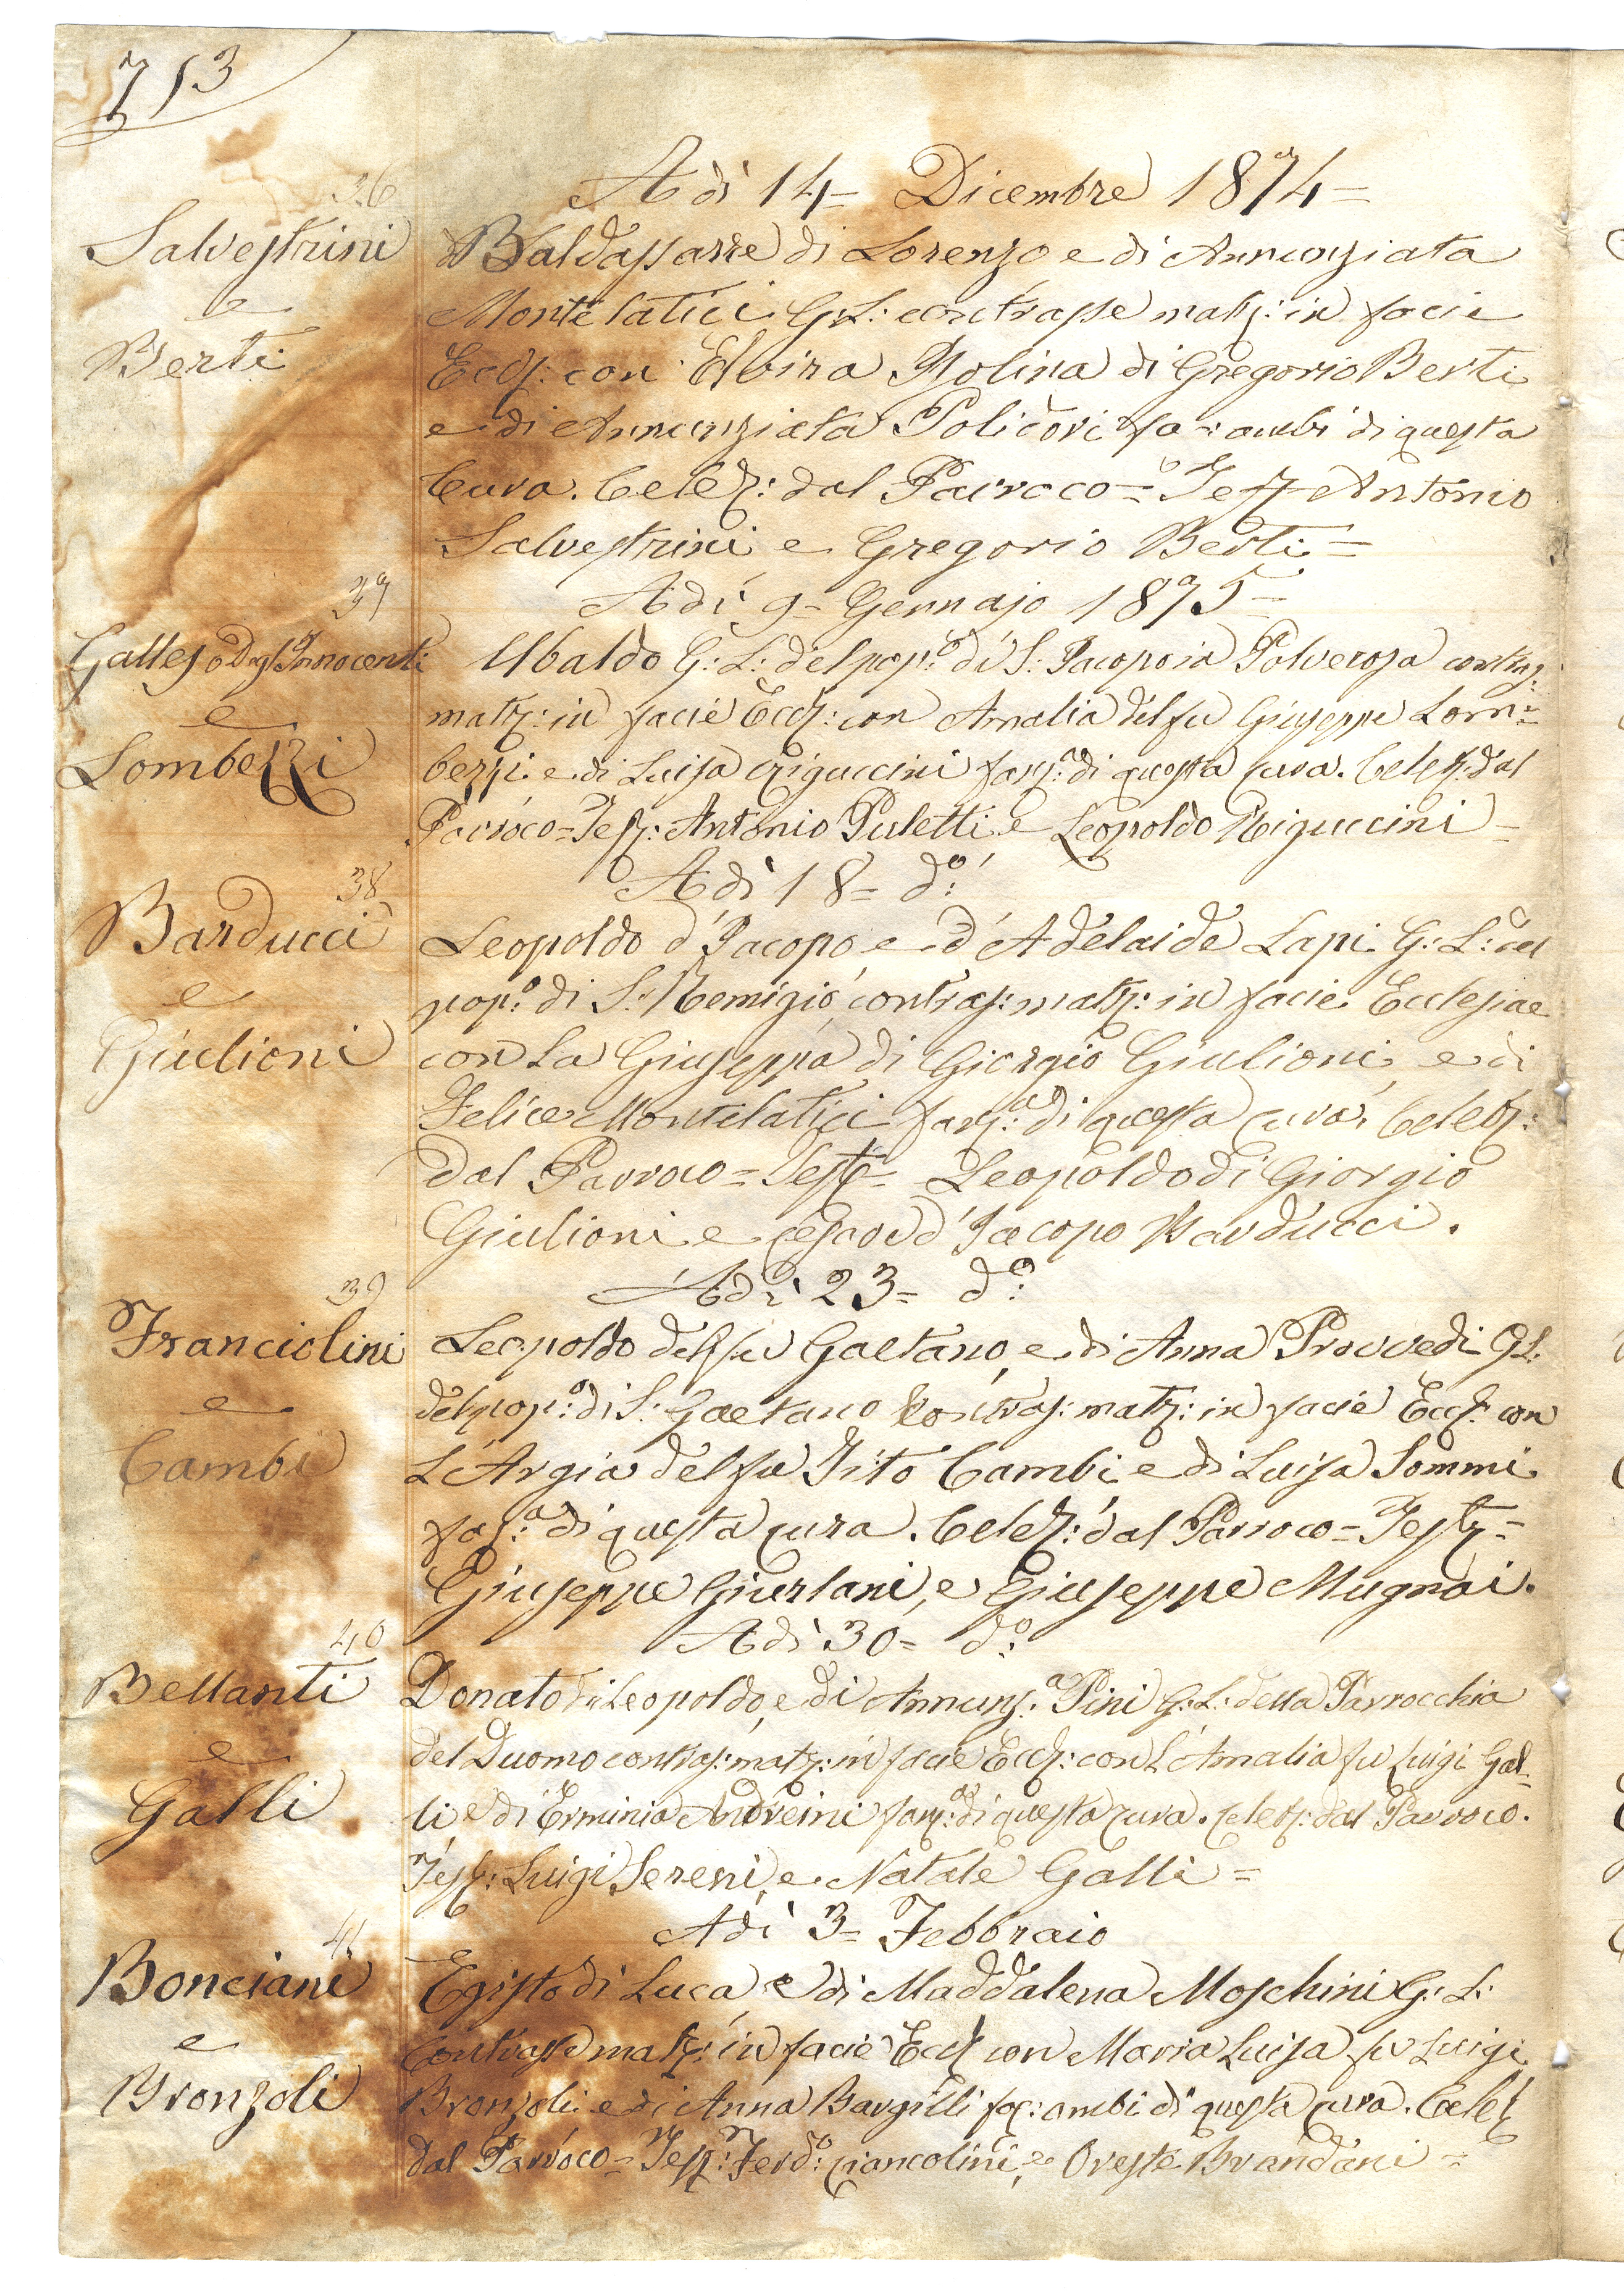 713
A dì 14= Dicembre 1874=
36
Salvestrini
e
Berti
Baldassarre di Lorenzo e di Annunziata
Montelatici G:L: contrasse matr: in facie
Eccl: con Elvira Molina di Gregorio Berti
e di Annunziata Policori fa: ambi di questa
Cura. Celeb: dal Parroco= Test Antonio
Salvestrini e Gregorio Berti=
Adì 9= Gennajo 1875=
37
Galles o Degl'Innocenti
e
Lombezzi
Ubaldo G:L: del pop:o di S: Jacopo in Polverosa contras:
matr: in facie Eccl: con Amalia del fu Giuseppe Lom=
bezzi e di Luisa Riguccini fanz:a di questa cura. Celeb: dal
Parroco= Test: Antonio Puletti e Leopoldo Riguccini=
Adì 18= d:o
38
Barducci
e
Giulioni
Leopoldo d'Jacopo e d'Adelaide Lapi G:L: del
pop:o di S. Remigio contras: matr: in facie Ecclesiae
con La Giuseppa di Giorgio Giulioni e di
Felice Montelatici fanz:a di questa cura. Celeb:
dal Parroco= Test= Leopoldo di Giorgio
Giulioni e d'Jacopo Barducci.
Adì 23= d:o
39
Franciolini
e
Cambi
Leopoldo del fu Gaetano e di Anna Provvedi GL:
del pop:o di S: Gaetano Contras: matr: in facie Eccl: con
L'Argia del fu Tito Cambi e di Luisa Sommi
fa:a di questa cura. Celeb: dal Parroco= Test=
Giuseppe Giurlani, e Giuseppe Mugnai.
Adì 30= d:o
40
Bellanti
e
Galli
Donato di Leopoldo, e di Annunz:a Pini G:L: della Parrocchia
del Duomo contras: matr: in facie Eccl: con L'Amalia fu Luigi Gal=
li e di Erminia Andreini fanz:a di questa cura. Celeb: dal Parroco.
Test: Luigi Sereni e Natale Galli=
Adì 3= Febbraio
41
Bonciani
e
Bronzoli
Egisto di Luca, e di Maddalena Moschini G:L:
Contrasse matr: in facie Eccl con Maria Luisa fu Luigi
Bronzoli e di Anna Bargilli fa: ambi di questa cura. Celeb
dal Parroco= Test: Ferd:o Ciancolini, e Oreste Brandani=